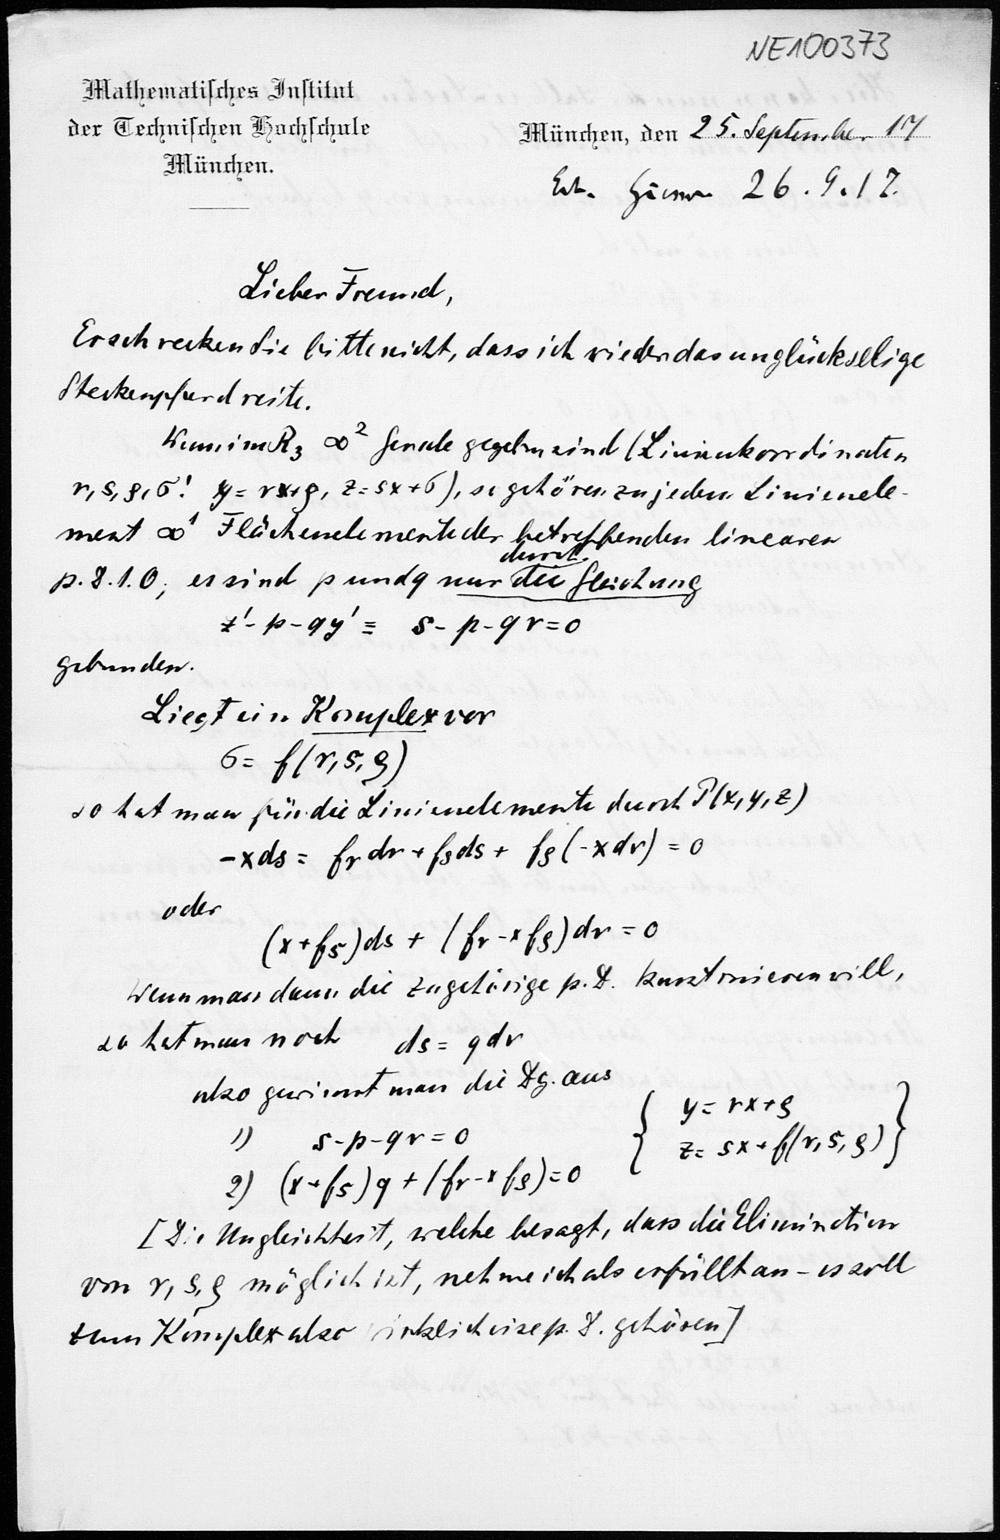 NE100373
Mathematisches Institut
der Technischen Hochschule
München.
München, den 25. September 17
26.9.17.
Lieber Freund,
Erschrecken Sie bitte nicht, dass ich wieder das unglückselige
Steckenpferd reite.
Wenn im R₃ ∞² Gerade gegeben sind (Linienkoordinaten
r, s, ρ, σ! y = rx+ρ, z = sx+σ), so gehören zu jedem Linienele-
ment ∞¹ Flächenelemente der betreffenden linearen
p. D. 1. O; es sind p und q nur durch die Gleichung
z' - p - qy' ≡ s - p - qr = 0
gebunden.
Liegt ein Komplex vor
σ = f(r, s, ρ)
so hat man für die Linienelemente durch P(x, y, z)
-xds = f_r dr + f_s ds + f_ρ(-xdr) = 0
oder
(x+f_s)ds + (f_r - xf_ρ)dr = 0
Wenn man dann die zugehörige p. D. konstruieren will,
so hat man noch ds = qdr
also gewinnt man die Dg. aus
1) s - p - qr = 0 { y = rx+ρ
2) (x+f_s)q + (f_r - xf_ρ) = 0 z = sx+f(r, s, ρ) }
[Die Ungleichheit, welche besagt, dass die Elimination
von r, s, ρ möglich ist, nehme ich als erfüllt an – es soll
zum Komplex also wirklich eine p. D. gehören]